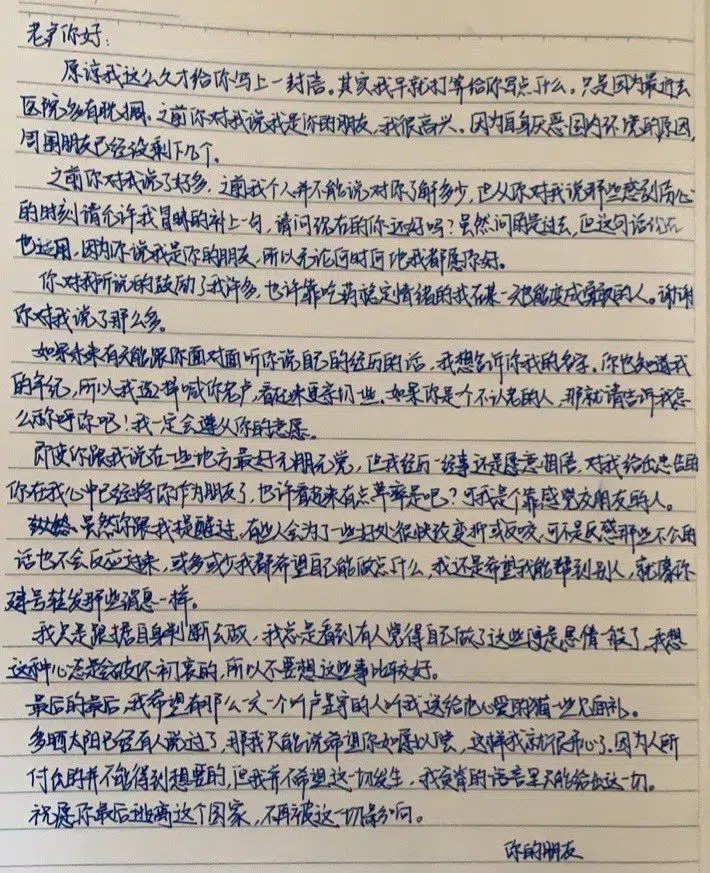 老卢你好:
原谅我这么久才给你写上一封信。其实我早就打算给你写点什么，只是因为最近去
医院多有耽搁。之前你对我说我是你的朋友，我很高兴。因为自身厌恶国内环境的原因，
周围朋友已经没剩下几个。
之前你对我说了好多，之前我个人并不能说对你了解多少，但从你对我说那些感到伤心
的时刻请允许我冒昧的补上一句，请问现在的你还好吗？虽然问的是过去，但这句话现在
也适用，因为你说我是你的朋友，所以无论何时何地我都愿你好。
你对我所说的鼓励了我许多，也许靠吃药稳定情绪的我在某一天也能变成勇敢的人。谢谢
你对我说了那么多。
如果未来有天能跟你面对面听你说自己的经历的话，我想告诉你我的名字。你也知道我
的年纪，所以我选择喊你老卢，看起来更亲切些。如果你是个不认老的人，那就请告诉我怎
么称呼你吧！我一定会遵从你的意愿。
即使你跟我说在一些地方最好无朋无党，但我经历一些事还是愿意相信，对我给出忠告的
你在我心中已经将你作为朋友了，也许看起来有点草率是吧？可我是个靠感觉交朋友的人。
虽然你跟我提醒过，有些人会为了一些好处很快改变折或反咬，可不是反感那些不公的
话也不会反应过来，或多或少我都希望自己能做点什么，我还是希望我能帮到别人，就像你
建号转发那些消息一样。
我只是根据自身判断去做，我总是看到有人觉得自己做了这些便是恩情一般了，我想
这种心态是会破坏初衷的，所以不要想这些事比较好。
最后的最后，我希望有那么一天一个叫卢昱宇的人叫我送给他心爱的猫一些兄面礼。
多晒太阳已经有人说过了，那我只能说希望你如愿以偿，这样我就很开心了。因为人所
付出的并不能得到想要的，但我并不希望这一切发生，我贫瘠的语言里只能给出这一切。
祝愿你最后逃离这个国家，不再被这一切影响。
你的朋友